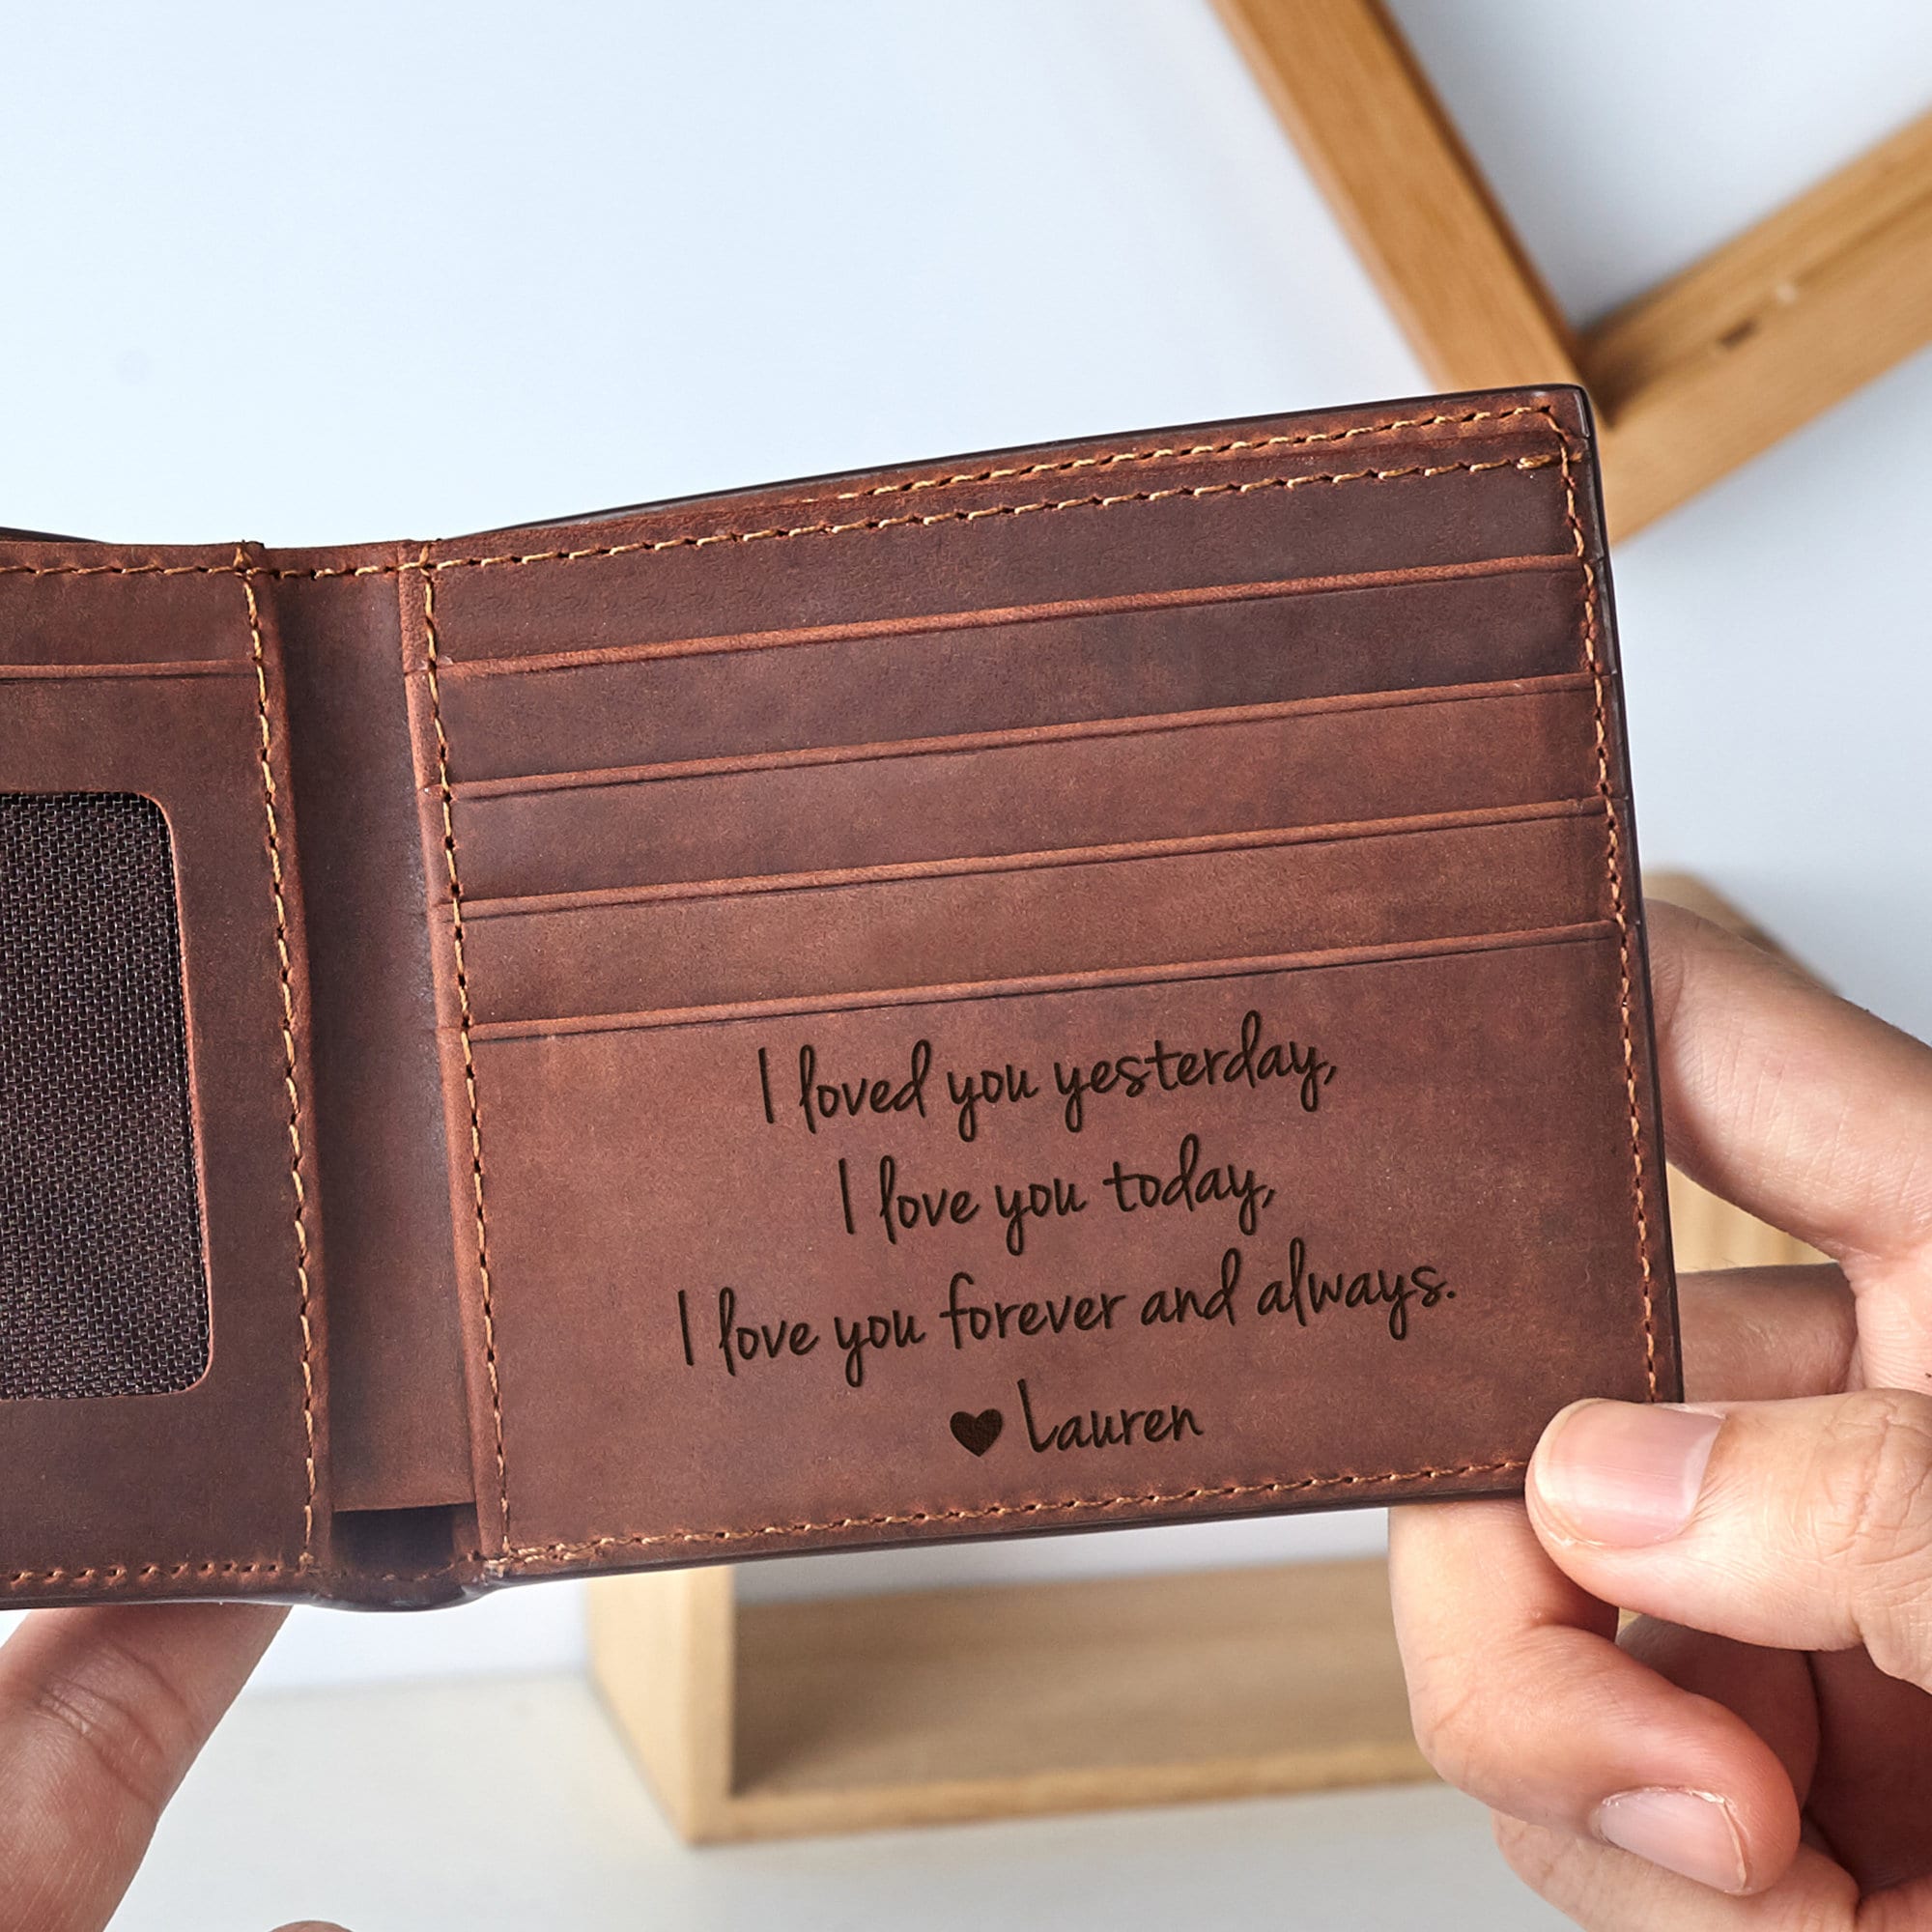 I loved you yesterday,
I love you today,
I love you forever and always.
♥ Lauren